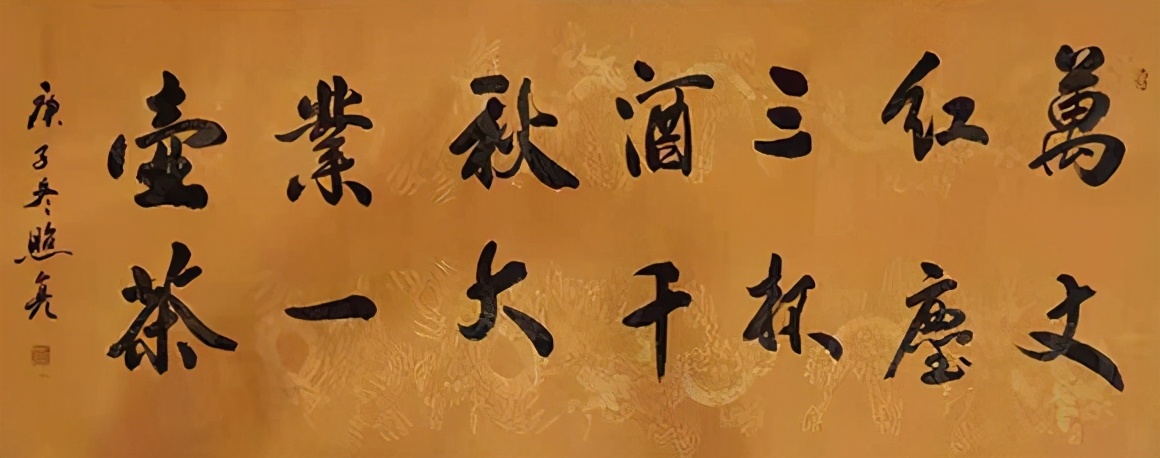 萬丈
紅塵
三杯
酒千
秋大
業一
壺茶
庚子冬